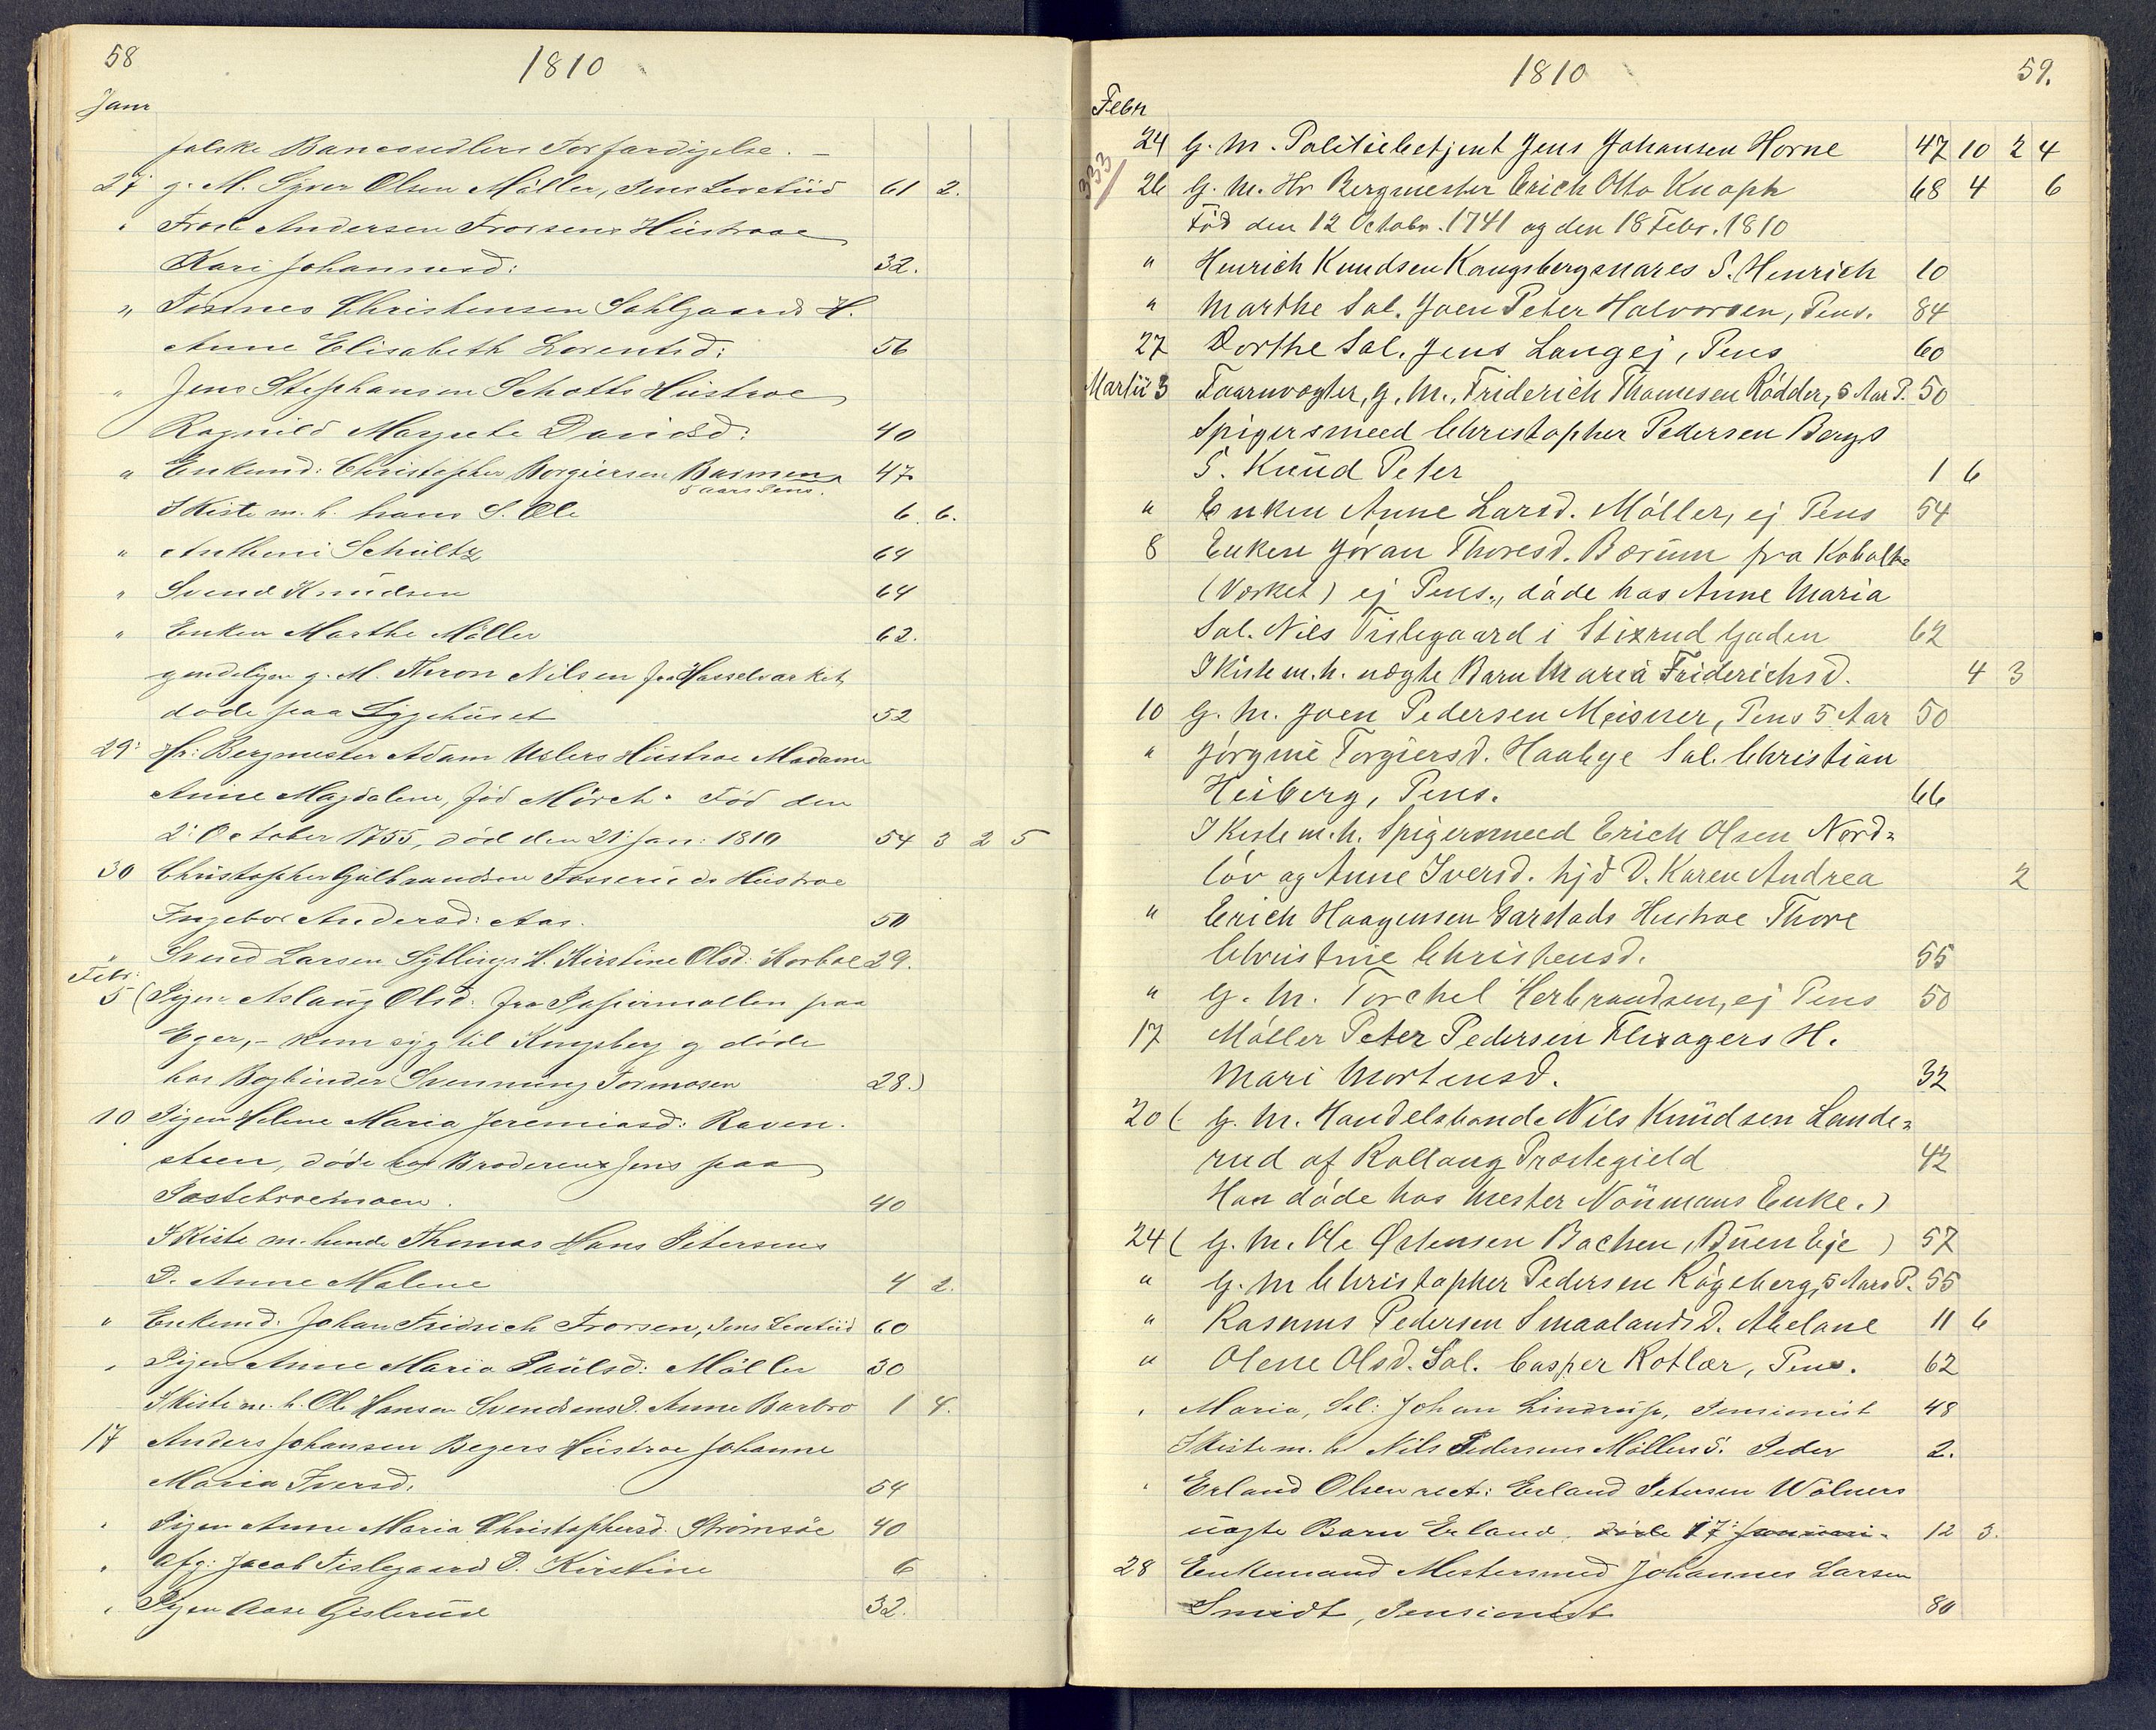 58
1810
Janr
falske Bancosedlers Forfærdigelse. —
27 g. M. Syver Olsen Möller, Pens Levetiid 61 2.
" Frode Andersen Frosens Hustroe
Kari Johannesd: 32.
" Tosnes Christensen Sahlgaards H.
Anne Elisabeth Lorentsd: 56
" Jens Stephansen Schotts Hustroe
Ragnild Margrete Davidsd: 40
" Enkemd: Christopher Borgiersen Barmen 47
5 aars Pens.
I Kiste m. h. hans S. Ole 6. 6.
" Anthoni Schultz 64
" Svend Knudsen 64
" Enken Marthe Möller 62.
g. M. Thron Nilsen fra Hasselværket
døde paa Sygehuset 52
29: Hr: Bergmester Adam Uslers Hustroe Madame
Anne Magdalene, fød Mörch. Fød den
2: October 1755, død den 21: Jan: 1810 54 3 2 5
30 Christopher Gulbrandsen Fosseruds Hustroe
Ingebor Andersd: Aas. 50
" Svend Larsen Syllings H. Kirstine Olsd: Korboe 29.
Febr:
5 (Pigen Aslaug Olsd: fra Papiirmøllen paa
Eger, - kom syg til Kongsberg og døde
hos Bogbinder Svenning Tormosen 28.)
10 Pigen Helene Maria Jeremiasd: Raven-
steen, døde hos Broderens Jens paa
Pastebroemoen. 40
I Kiste m. hende Thomas Hans Petersens
D. Anne Malene 4 2.
" Enkemd. Johan Fridrich Frorsen, Pens Levetiid 60
" Pigen Anne Maria Paulsd: Möller 30
I Kiste m. h. Ole Hansen Svendsens D. Anne Barbro 1 4.
17 Anders Johansen Begers Hustroe Johanne
Maria Iversd. 54
" Pigen Anne Maria Christophersd. Strømsøe 40
" Afg: Jacob Tislegaards D. Kirstine 6
" Pigen Aase Gislerud 32.
1810
59.
Febr
24 G. M. Politiebetjent Jens Johansen Horne 47 10 2 4
333
26 G. M. Hr Bergmester Erich Otto Knoph 68 4 6
Fød den 12 Octobr. 1741 og den 18 Febr. 1810
" Henrich Knudsen Kongsbergmares S. Henrich 10
" Marthe Sal. Joen Peter Halvorsen, Pens. 84
27 Dorthe Sal. Jens Langej, Pens 60
Martii 3 Taarnvogter, g. M., Friderich Thomesen Rödder, 5 Aar P. 50
Spigersmeed Christopher Pedersen Bergs
S. Knud Peter 1 6
" Enken Anne Larsd. Möller, ej Pens 54
8 Enken Jöran Thoresd. Bærum fra Kobolt=
(Værket) ej Pens., døde hos Anne Maria
Sal. Nils Tislegaard i Stixrud Gaden 62
I Kiste m. h. uægte Barn Maria Friderichsd. 4 3
10 G. M. Joen Pedersen Meisner, Pens 5 Aar 50
" Jörgine Torgiersd. Haabye Sal. Christian
Heiberg, Pens. 66
I Kiste m. h. Spigersmeed Erich Olsen Nord=
löv og Anne Iversd. hjd D. Karen Andrea 2
" Erich Haagensen Garstads Hustroe Thore
Christine Christensd. 55
" G. M. Torchel Herbrandsen, ej Pens 50
17 Möller Peter Pedersen Flesagers H.
Mari Mortensd. 32
20 ( G. M. Handelsbonde Nils Knudsen Lande=
rud af Rollaug Præstegield 42
Han døde hos Mester Noümans Enke.)
24 ( G. M. Ole Østensen Bachen, Büen Eje ) 57
" G. M Christopher Pedersen Rögeberg, 5 Aars P. 55
" Rasmus Pedersen Smaalands D. Abelone 11 6
" Olene Olsd. Sal. Casper Kotlær, Pens. 62
" Maria, Sal: Johan Lindrup, Pensionist 48
I Kiste m. h. Nils Pedersens Möllers S. Peder 2.
" Erland Olsen rect: Erland Petersen Wölners
uægte Barn Erland. døde 17: Januari. 12 3.
28 Enkemand Mestersmed Johannes Larsen
Smidt, Pensionist 80